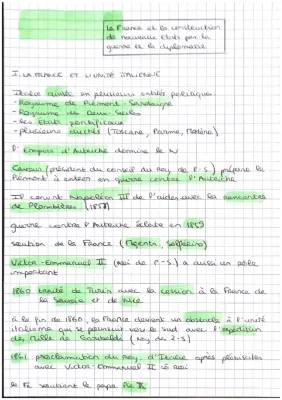 La France et la construction
de nouveaux Etats par la
guerre et la diplomatie
I. LA FRANCE ET L'UNITÉ ITALIENNE
Italie divisée en plusieurs entités politiques
- Royaume de Piémont-Sardaigne
- Royaume des Deux-Siciles
- les Etats pontificaux
- plusieurs duchés (Toscane, Parme, Modène)
l'Empire d'Autriche domine le N
Cavour (président du conseil du Roy de P-S) prépare le
Piémont à entrer en guerre contre l'Autriche
Il convint Napoléon III de l'aider avec la rencontre
de Plombières (1858)
guerre contre l'Autriche éclate en 1859
soutien de la France (Magenta, Solférino)
Victor-Emmanuel II (Roi de P-S) a aussi un rôle
important
1860 traité de Turin avec la cession à la France de
la Savoie et de Nice
à la fin de 1860, la France devient un obstacle à l'unité
italienne qui se poursuit vers le sud avec l'expédition
des Mille de Garibaldi (Roy de 2-S)
1861 proclamation du Roy. d'Italie après plébiscites
avec Victor-Emmanuel II le roi
la Fr soutient le pape Pie IX